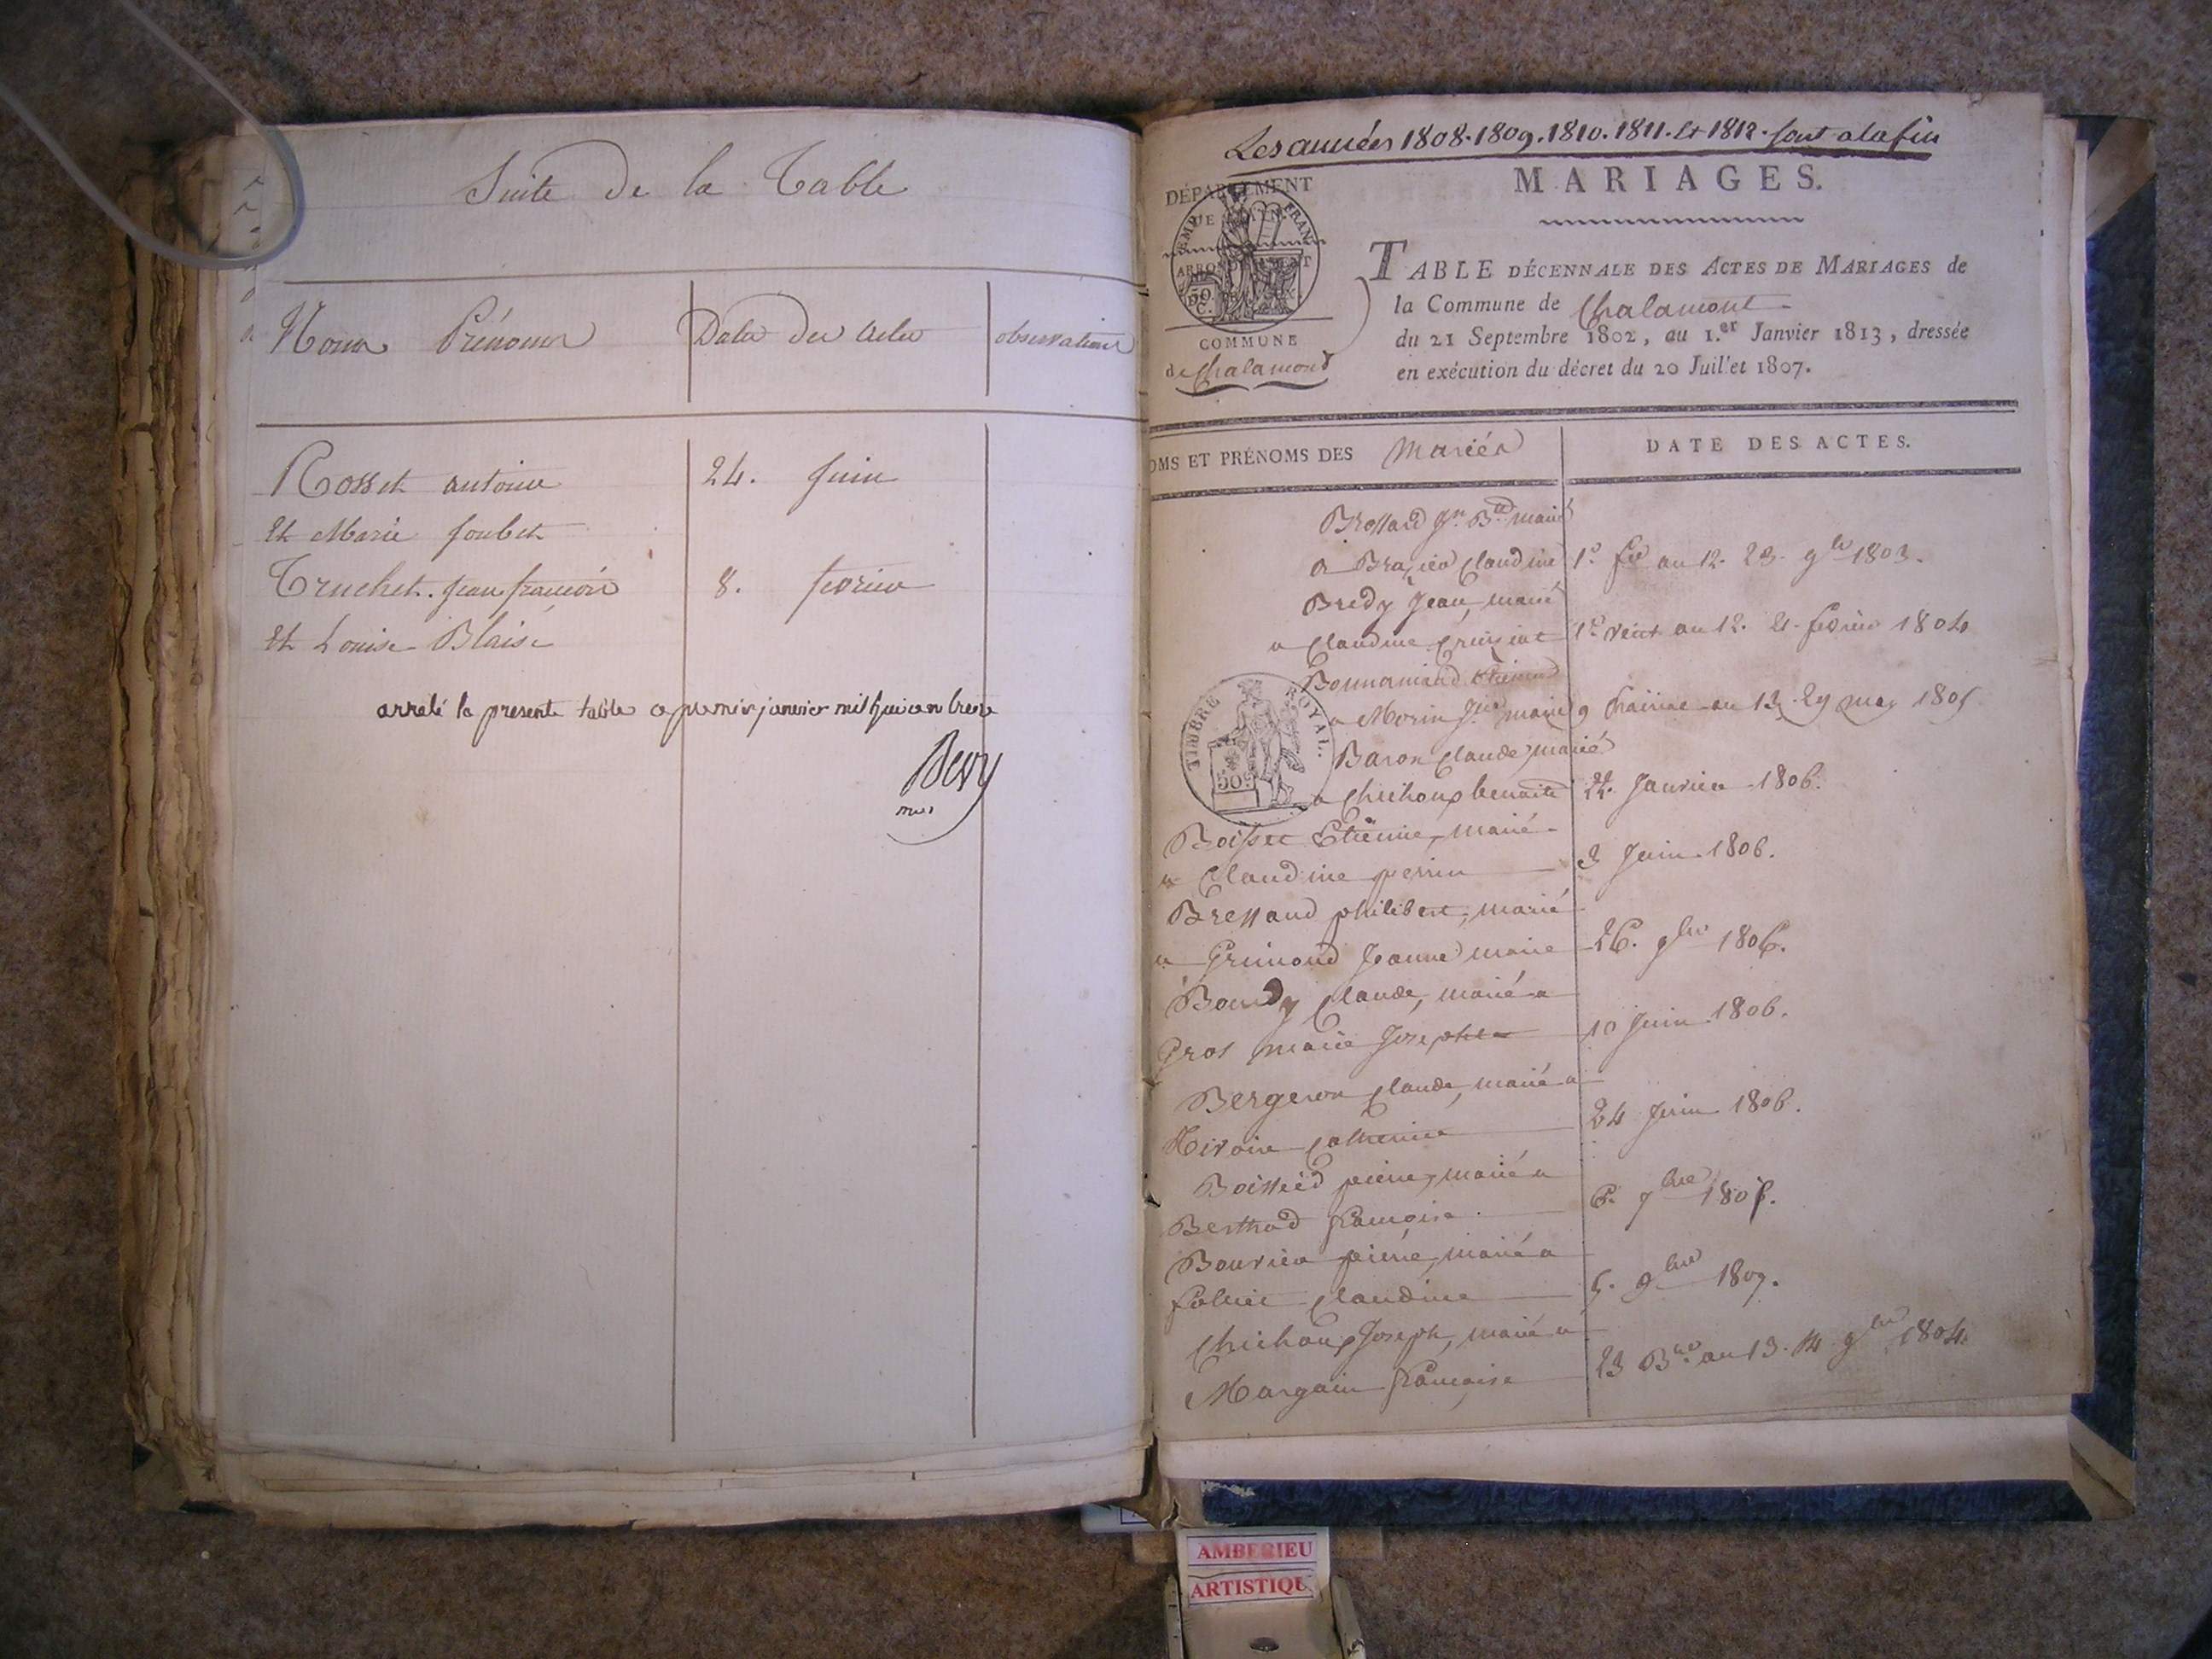 Suite de la Table
Noms Prénoms
Date des Actes
observations
Rosset antoine
24. Juin
et Marie Joubet
Truchet. Jean francois
8. fevrier
et Louise Blaise
arreté la presente table a premier janvier mil huit cen treize
Les années 1808. 1809. 1810. 1811. et 1812. sont a la fin
MARIAGES.
DÉPARTEMENT
DE L'AIN.
ARRONDISSEMENT
EMP FRAN
50. C.
COMMUNE
de Chalamont
TABLE DÉCENNALE DES ACTES DE MARIAGES de
la Commune de Chalamont
du 21 Septembre 1802, au 1.er Janvier 1813, dressée
en exécution du décret du 20 Juillet 1807.
OMS ET PRÉNOMS DES Mariés
DATE DES ACTES.
Brossard Jn. Bte marié
a Brazier Claudine
1er fre an 12. 23. 9bre 1803.
Bredy Jean, marié
a Claudine
1er vent an 12. 21. fevrier 1804
Bonnamand
a Morin marié
9 Prairial an 13. 29 may 1805
TIMBRE ROYAL.
50c
Baron Claude, marié
a Chichoux benoite
22. Janvier 1806.
Boisset Etienne, marié
a Claudine perrin
3 Juin 1806.
Bressand philibert, marié
a Grimond Jeanne marie
26. 9bre 1806.
Bourdy Claude, marié a
Gros marie Josephte
10 Juin 1806.
Bergeron Claude, marié a
Catherine
24 Juin 1806.
pierre, marié a
Berthod francoise
6. 7bre 1807.
Bouvier pierre, marié a
Claudine
5. 9bre 1807.
Chichoux Joseph, marié a
Margain francoise
23 Bre an 13. 14 9bre 1804.
AMBERIEU
ARTISTIQU